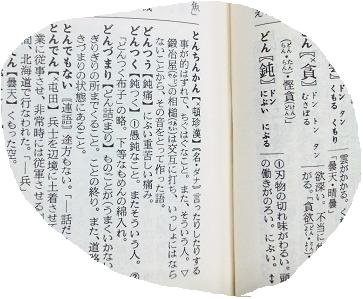 雲がかかる。く
ドン トン タン
くもる くもり
「曇天・晴曇」
どん【×貪】ドン トン タン むさぼる
欲深い。不当に
がる。「貪欲
・慳貪」
どん【鈍】ドン にぶい にぶる
①刃物の切れ味がわるい。頭
の働きがのろい。にぶい。↕
焦
とんちんかん【頓珍漢】《名・ダナ》言ったりしたりする
事が的はずれで、ちぐはぐなこと。また、そういう人。▽
鍛冶屋などの相槌が交互に打ち、いっしょにはなら
ないことから、その音をとって作った語。
どんつう【鈍痛】にぶい重苦しい痛み。
どんつく【鈍つく】①愚鈍なこと。またそういう人。②
「どんつく布子」の略。下等なもめんの綿入れ。
どんづまり【どん詰まり】ものごとがうまくいかない
ぎりぎりの所までくること。ことの終り。また、道路
きづまりの状態にあること。
とんでもない〘連語〙途方もない。「―話だ
とんでん【屯田】兵士を辺境に土着させ
業に従事させ、非常時には従軍させる
間、北海道で行われた。「―兵」
んてん【曇天】くもった空。